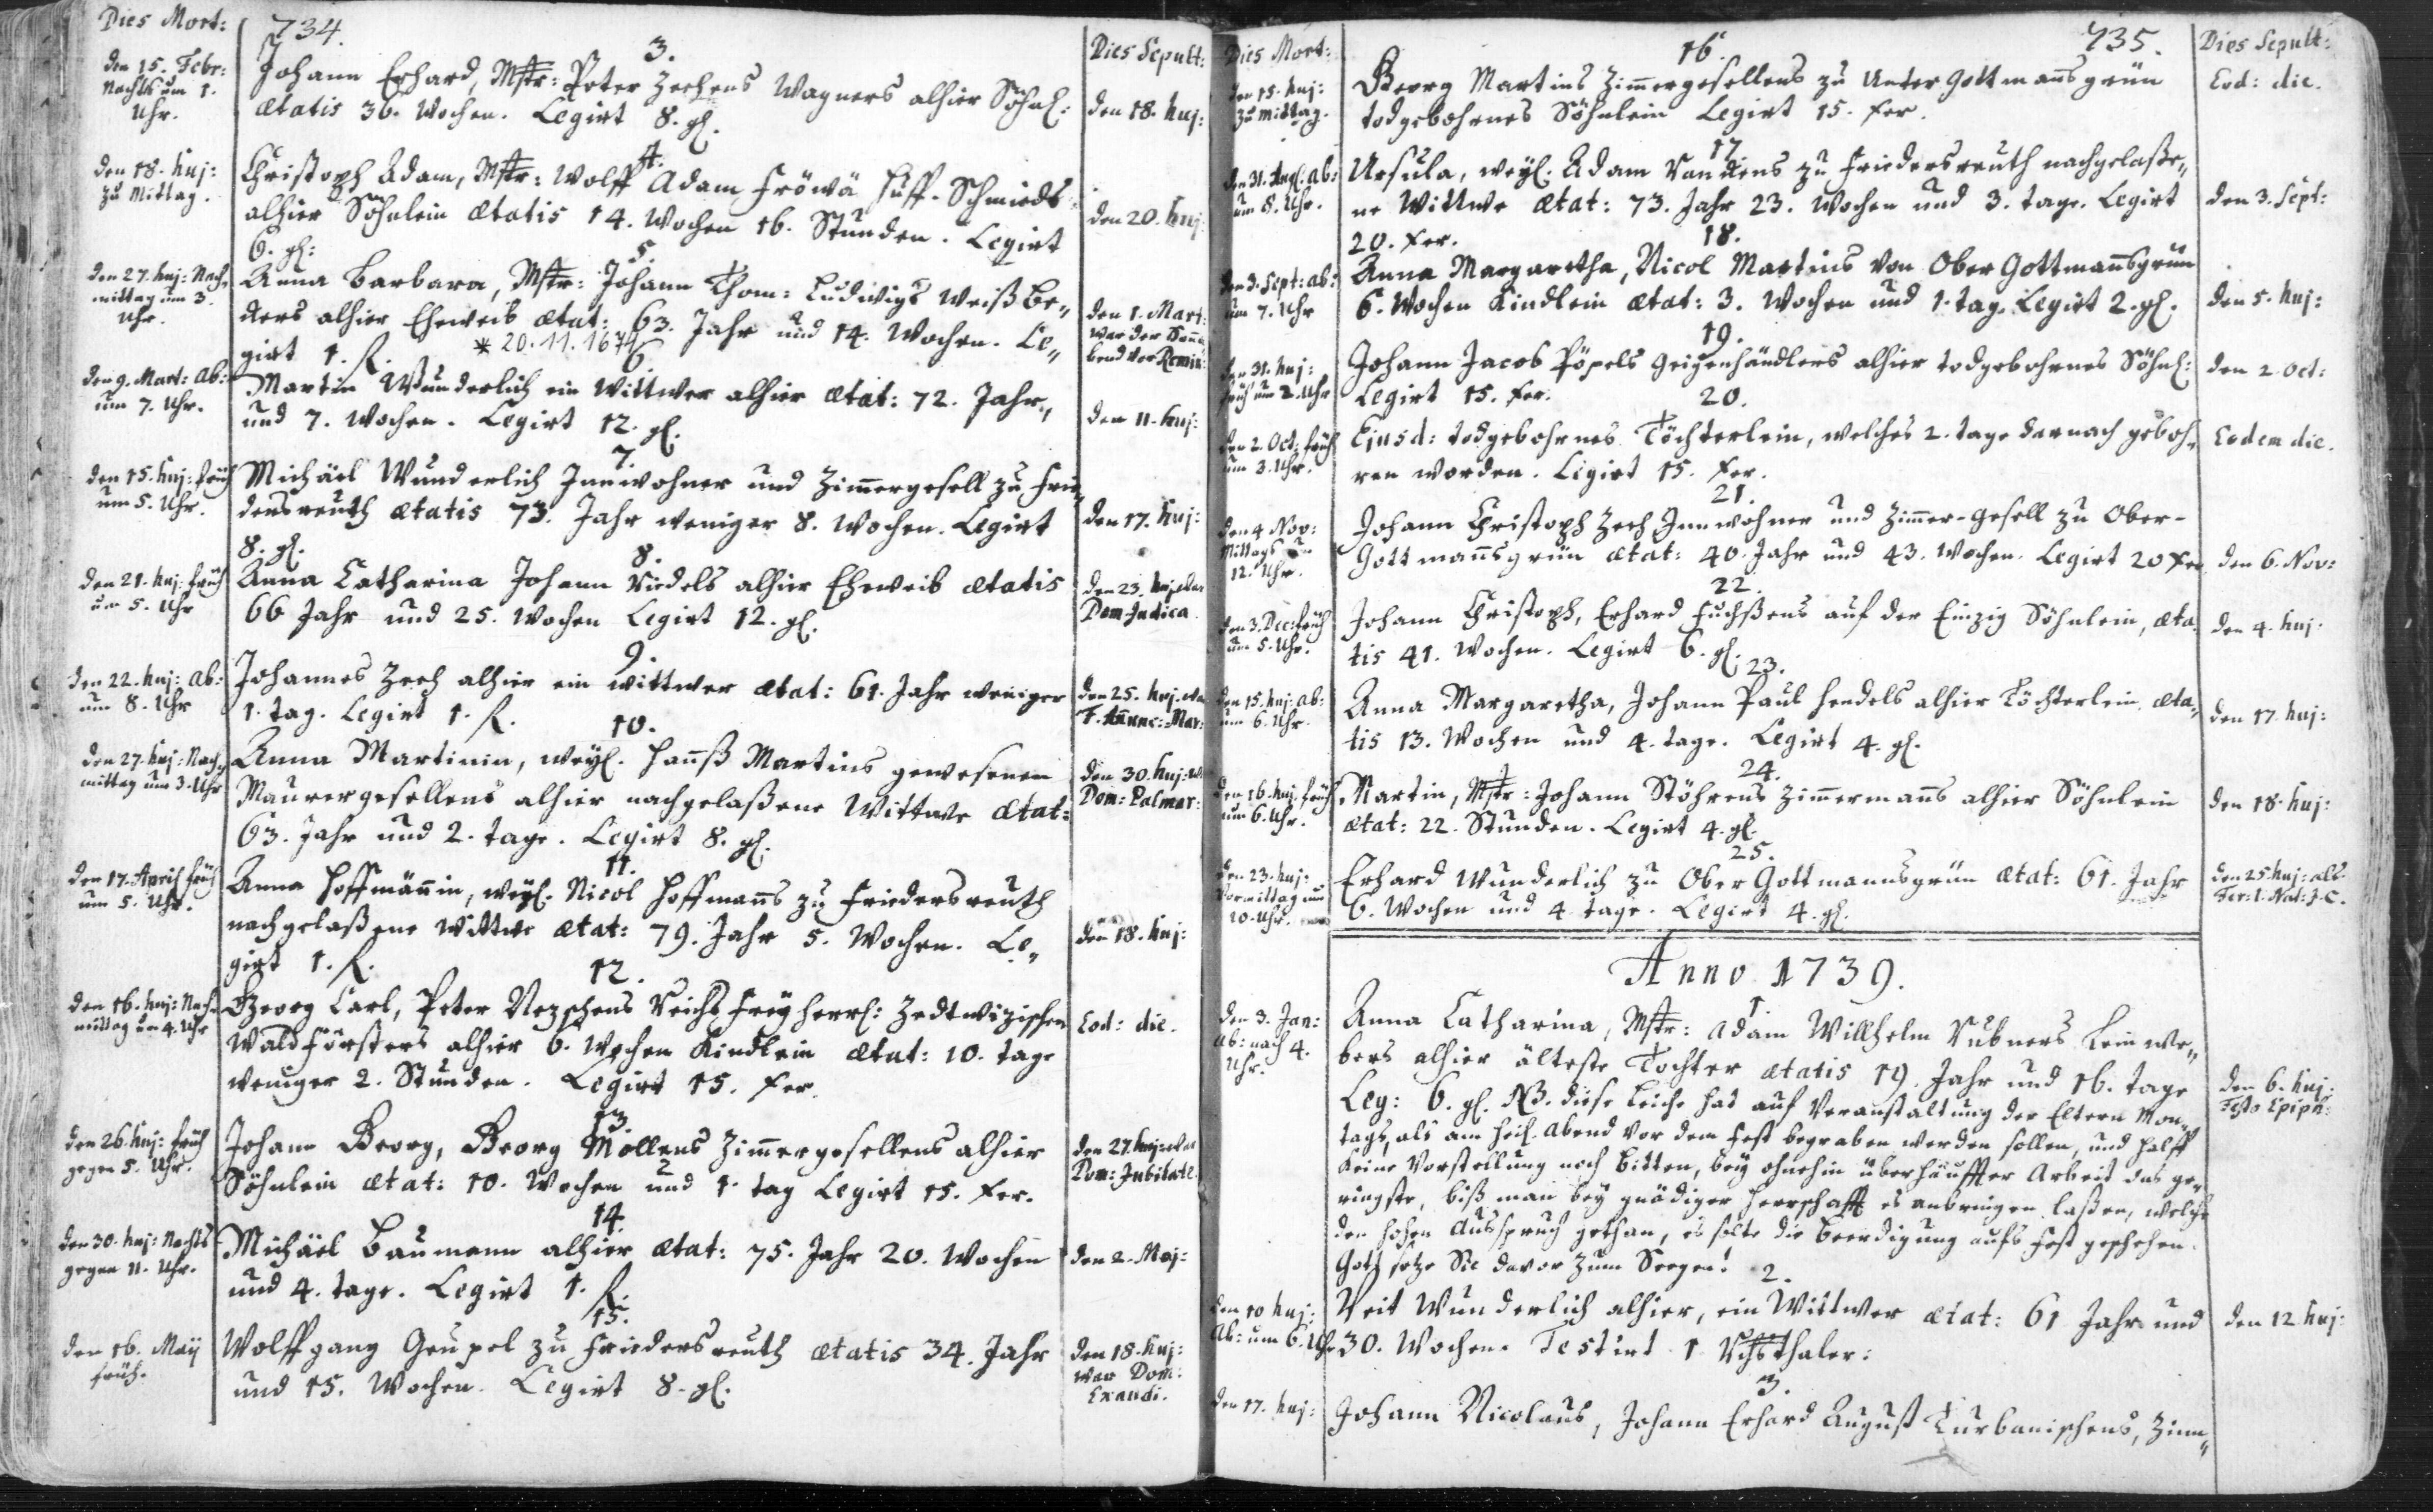 Dies Mort:
734.
Dies Sepult:
3.
den 15. Febr:
Nachts um 1.
Uhr.
Johann Erhard, Mstr: Peter Zechens Wagners alhier Söhnl:
ætatis 36. Wochen. Legirt 8. gl.
den 18. huj:
4.
den 18. huj:
zu Mittag.
Christoph Adam, Mstr: Wolff Adam Fröwä Huff-Schmieds
alhier Söhnlein ætatis 14. Wochen 16. Stunden. Legirt
6. gl:
den 20. huj.
5.
den 27. huj: Nach,,
mittag um 3.
Uhr.
Anna Barbara, Mstr: Johann Thom: Ludwigs Weißbe,,
ckers alhier Eheweib ætat: 63. Jahr und 14. Wochen. Le,,
girt 1. fl.
* 20.11.1674
den 1. Mart:
war der Sonna
bend vor Remin:
6.
den 9. Mart: Ab:
um 7. Uhr.
Martin Wunderlich ein Wittwer alhier ætat: 72. Jahr,,
und 7. Wochen. Legirt 12. gl.
den 11. huj:
7.
den 15. huj: früh
um 5. Uhr.
Michäel Wunderlich Innwohner und Zimergesell zu Frie,,
dersreuth ætatis 73. Jahr weniger 8. Wochen. Legirt
8. gl.
den 17. huj:
8.
den 21. huj: früh
um 5. Uhr
Anna Catharina Johann Riedels alhier Eheweib ætatis
66 Jahr und 25. Wochen Legirt 12. gl.
den 23. huj. war
Dom. Judica.
9.
den 22. huj: Ab:
um 8. Uhr
Johannes Zech alhier ein Wittwer ætat: 61. Jahr weniger
1. tag. Legirt 1. fl.
den 25. huj. war
F. Annunc: Mar:
10.
den 27. huj: Nach,,
mittag um 3. Uhr
Anna Martinin, weyl. Hannß Martins gewesenen
Maurergesellens alhier nachgelaßene Wittwe ætat:
63. Jahr und 2. tage. Legirt 8. gl.
den 30. huj: w
Dom: Palmar:
11.
den 17. April früh
um 5. Uhr.
Anna Hoffmännin, weyl. Nicol Hoffmanns zu Friedersreuth
nachgelaßene Wittwe ætat: 79. Jahr 5. Wochen. Le,,
girt 1. fl.
den 18. huj:
12.
den 16. huj: Nach,,
mittag um 4. Uhr
Georg Carl, Peter Nezschens Reichs Freyherrl: Zedtwizischen
Waldförsters alhier 6. Wochen Kindlein ætat: 10. tage
weniger 2. Stunden. Legirt 15. xer.
Eod: die.
13.
den 26. huj: früh
gegen 5. Uhr.
Johann Georg, Georg Mollens Zimergesellens alhier
Söhnlein ætat: 10. Wochen und 1. tag Legirt 15. xer.
den 27. huj: war
Dom: Jubilate.
14.
den 30. huj: Nachts
gegen 11. Uhr.
Michäel Baumann alhier ætat: 75. Jahr 20. Wochen
und 4. tage. Legirt 1. fl.
den 2. Maj:
15.
den 16. Maij
früh.
Wolffgang Geupel zu Friedersreuth ætatis 34. Jahr
und 15. Wochen. Legirt 8. gl.
den 18. huj:
war Dom:
Exaudi.
Dies Mort:
735.
Dies Sepult:
16.
den 15. huj:
zu Mittag.
Georg Martins Zimergesellens zu Unter Gottmansgrün
todgebohrnes Söhnlein Legirt 15. xer.
Eod: die.
17.
den 31. Aug: ab:
um 8. Uhr.
Ursula, weyl. Adam zu Friedersreuth nachgelaße,,
ne Wittwe ætat: 73. Jahr 23. Wochen und 3. tage. Legirt
20. xer.
den 3. Sept:
18.
den 3. Sept: ab:
um 7. Uhr
Anna Margaretha, Nicol Martins von Ober Gottmansgrün
6. Wochen Kindlein ætat: 3. Wochen und 1. tag. Legirt 2. gl.
den 5. huj:
19.
den 31. huj:
früh um 2. Uhr
Johann Jacob Pöpels Geigenhändlers alhier todgebohrnes Söhnl:
Legirt 15. xer.
den 2. Oct:
20.
den 2. Oct: früh
um 3. Uhr.
Ejusd: todgebohrnes Töchterlein, welches 2. tage darnach geboh,,
ren worden. Legirt 15. xer.
Eodem die.
21.
den 4 Nov:
Mittags um
12. Uhr.
Johann Christoph Zech Innwohner und Zimer-Gesell zu Ober-
Gottmannsgrün ætat: 40. Jahr und 43. Wochen. Legirt 20 xer
den 6. Nov:
22.
den 3. Dec: früh
um 5. Uhr.
Johann Christoph, Erhard Fuchßens auf der Einzig Söhnlein, æta
tis 41. Wochen. Legirt 6. gl.
den 4. huj.
23.
den 15. huj: ab:
um 6. Uhr.
Anna Margaretha, Johann Paul Hendels alhier Töchterlein, æta,,
tis 13. Wochen und 4. tage. Legirt 4. gl.
den 17. huj:
24.
den 16. huj. früh
um 6. Uhr.
Martin, Mstr: Johann Stöhrens Zimermans alhier Söhnlein
ætat: 22. Stunden. Legirt 4. gl.
den 18. huj:
25.
den 23. huj:
Vormittag um
10. Uhr.
Erhard Wunderlich zu Ober Gottmannsgrün ætat: 61. Jahr
6. Wochen und 4 tage. Legirt 4. gl.
den 25. huj: als
Fer: 1. Nat: J. C.
Anno 1739.
1.
den 3. Jan:
ab: nach 4.
Uhr.
Anna Catharina, Mstr: Adam Willhelm Rubners Leinwe,,
bers alhier älteste Tochter ætatis 19. Jahr und 16. tage
Leg: 6. gl. NB. diese Leiche hat auf Veranstaltung der Eltern Mon,,
tags, als am heil. Abend vor dem Fest begraben werden sollen, und halff
keine Vorstellung noch bitten, bey ohnehin überhäuffter Arbeit das ge,,
ringste, biß man bey gnädiger Herrschafft es anbringen laßen, welche
den hohen Ausspruch gethan, es solte die Beerdigung aufs Fest geschehen.
Gott setze Sie davor zum Seegen!
den 6. huj.
Festo Epiph:
2.
den 10 huj:
Ab: um 6. Uhr
Veit Wunderlich alhier, ein Wittwer ætat: 61 Jahr und
30. Wochen. Testirt 1 Rchsthaler:
den 12 huj:
3.
den 17. huj:
Johann Nicolaus, Johann Erhard August Turbanischens, Zim,,